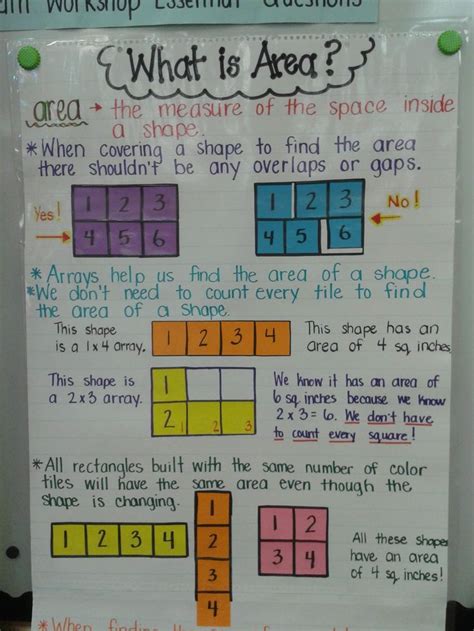 Workshop Essential Questions
What is Area?
area → the measure of the space inside
a shape.
*When covering a shape to find the area
there shouldn't be any overlaps or gaps.
Yes!
1 2 3
4 5 6
1 2 3
4 5 6
No!
*Arrays help us find the area of a shape.
*We don't need to count every tile to find
the area of a shape.
This shape
is a 1x4 array.
1 2 3 4
This shape has an
area of 4 sq. inches.
This shape is
a 2x3 array.
1
2 1 2 3
We know it has an area of
6 sq. inches because we know
2x3=6. We don't have
to count every square!
*All rectangles built with the same number of color
tiles will have the same area even though the
shape is changing.
1 2 3 4
1
2
3
4
1 2
3 4
All these shapes
have an area
of 4 sq. inches!
*When finding the